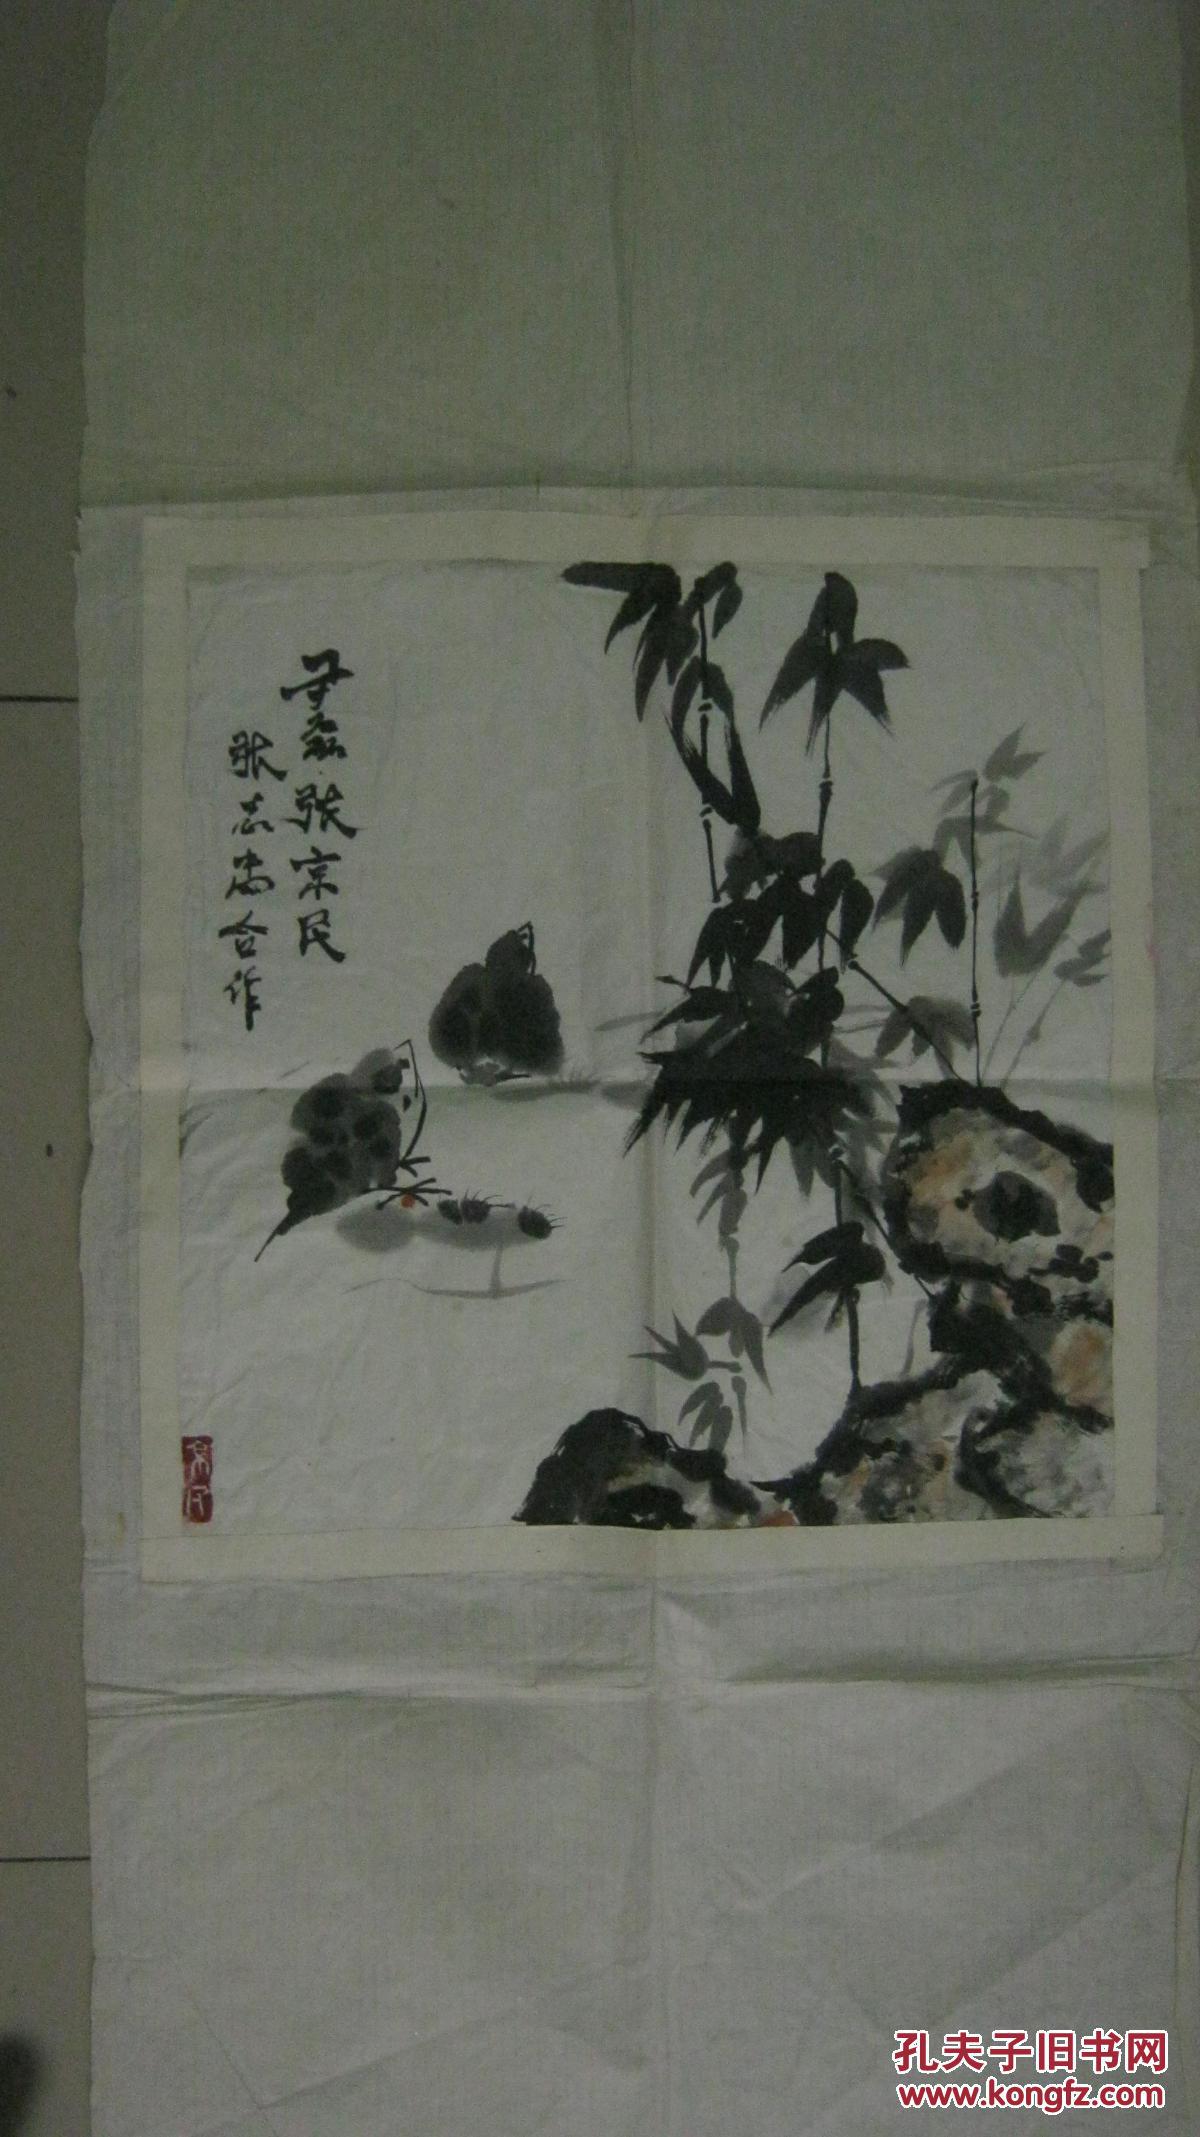 尹磊张京民
张志鸿合作
京民
孔夫子旧书网
www.kongfz.com